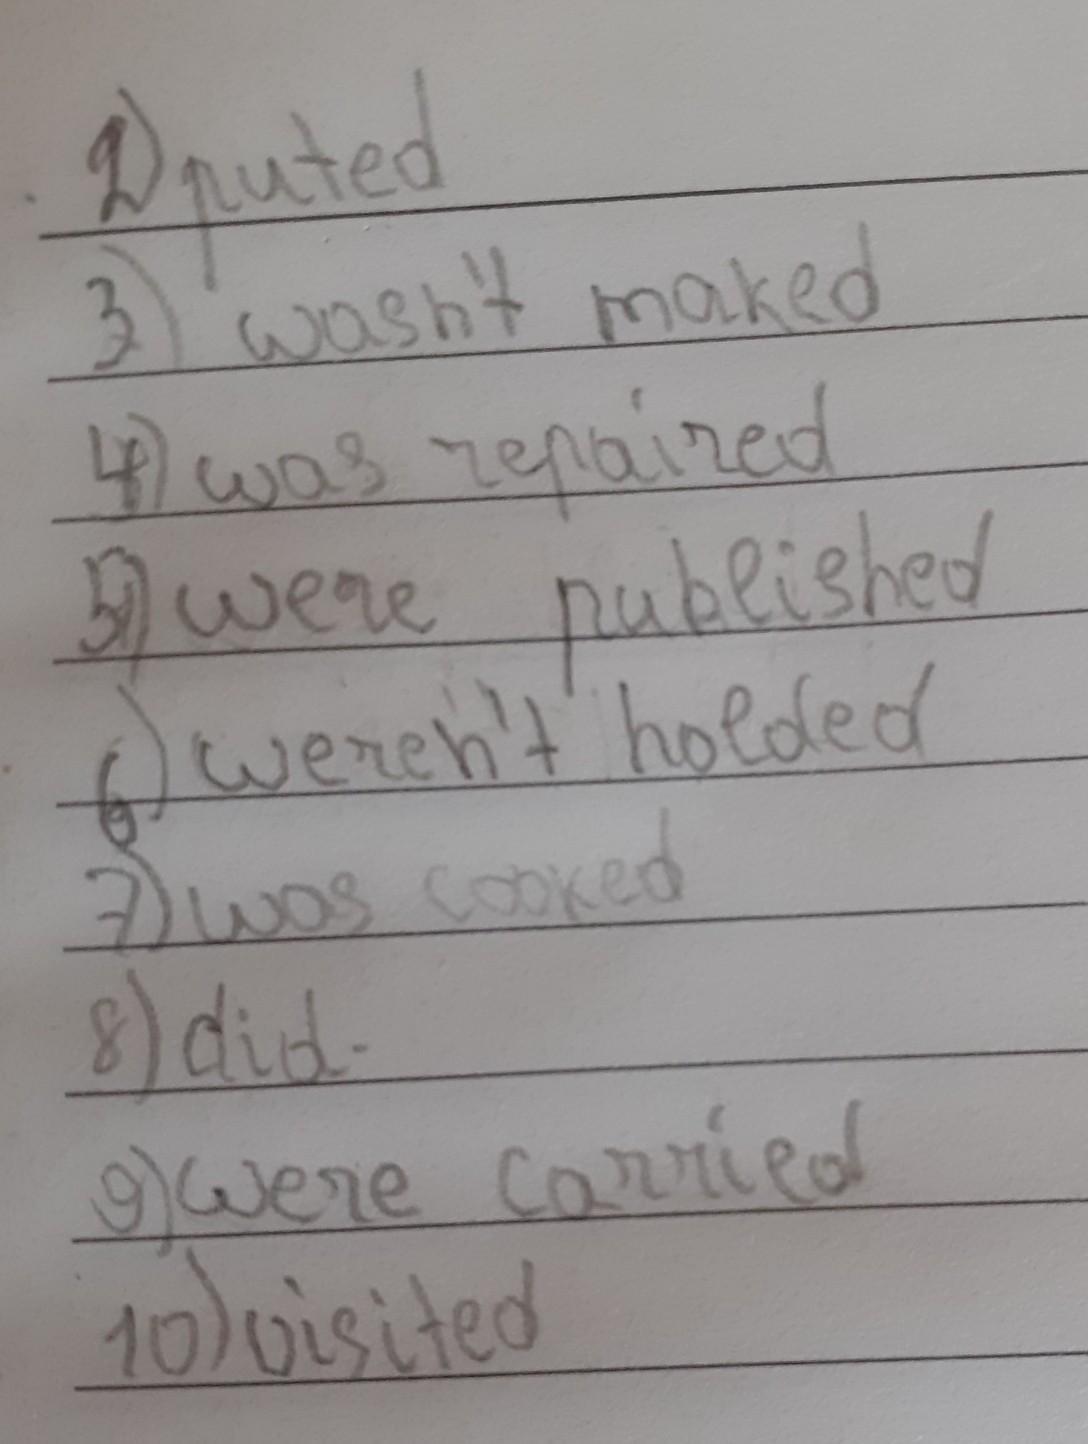 2) puted
3) wasn't maked
4) was repaired
5) were published
6) weren't holded
7) was cooked
8) did.
9) were carried
10) visited